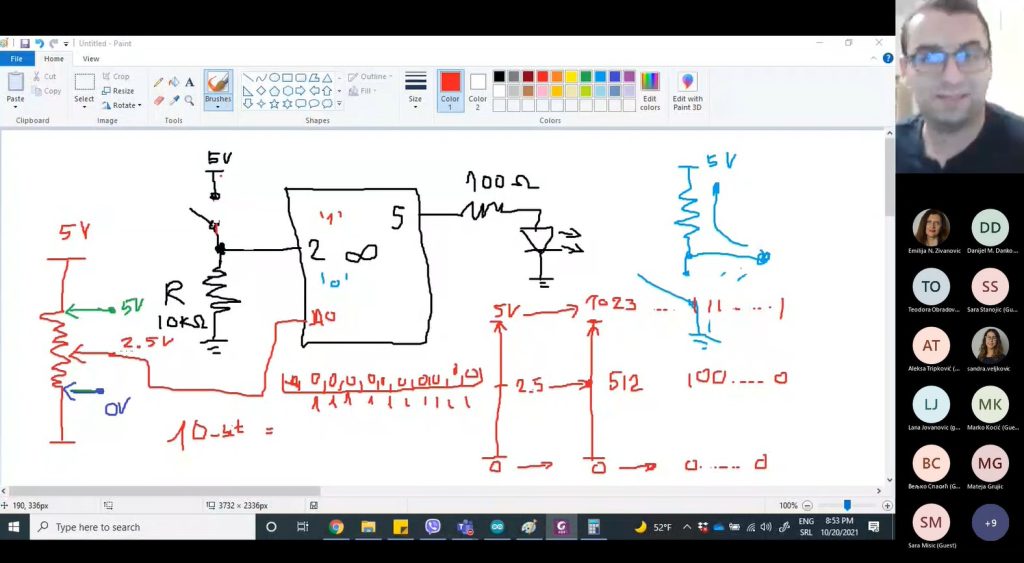 Untitled - Paint
File
Home
View
Paste
Cut
Copy
Clipboard
Select
Crop
Resize
Rotate
Image
Tools
Brushes
Shapes
Outline
Fill
Size
Color 1
Color 2
Edit colors
Edit with Paint 3D
Colors
5V
100Ω
5V
5V
'1'
5
2
∞
'0'
R
10kΩ
A0
5V
2.5V
0V
5V
1023
.... 111.....1
2.5
512
100....0
0
0
0.....0
10-bit =
0 0 0 0 0 0 0 0 0 0
1 1 1 1 1 1 1 1 1 1
190, 336px
3732 × 2336px
100%
Type here to search
52°F
ENG
SRL
8:53 PM
10/20/2021
Emilija N. Zivanovic
DD
Danijel M. Danko...
TO
Teodora Obradov...
SS
Sara Stanojic (Gu...
AT
Aleksa Tripković (...
sandra.veljkovic
LJ
Lana Jovanovic (g...
MK
Marko Kocić (Gue...
BC
Вељко Спасић (G...
MG
Mateja Grujic
SM
Sara Misic (Guest)
+9